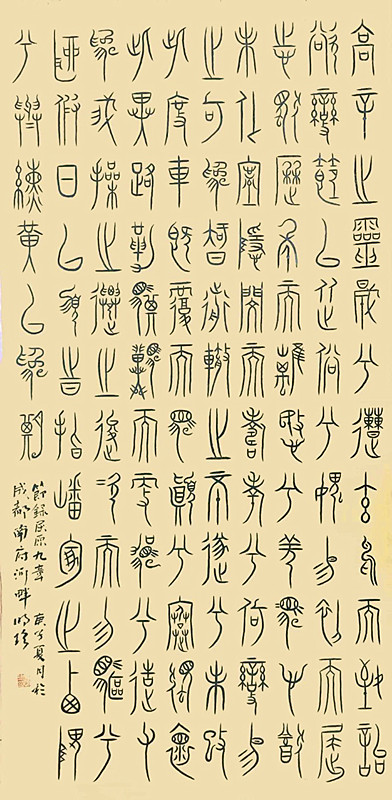 高辛之靈晟兮遭玄鳥而致詒
欲變節以從俗兮媿易初而屈
志獨歷年而離愍兮羌馮心猶
未化寧隱閔而壽考兮何變易
之可為知前轍之不遂兮未改
此度車既覆而馬顛兮蹇獨懷
此異路勒騏驥而更駕兮造父
為我操之遷之逡次而勿驅兮
聊假日以須時指嶓冢之西隈
兮與纁黃以為期
節錄屈原九章 庚子夏月於
成都南府河畔